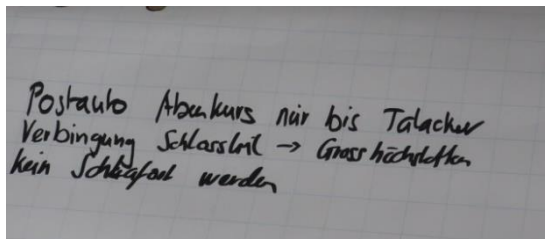 Postauto Abenkurs nur bis Talacker
Verbingung Schlosswil → Grosshöchstetten
kein Schlafort werden